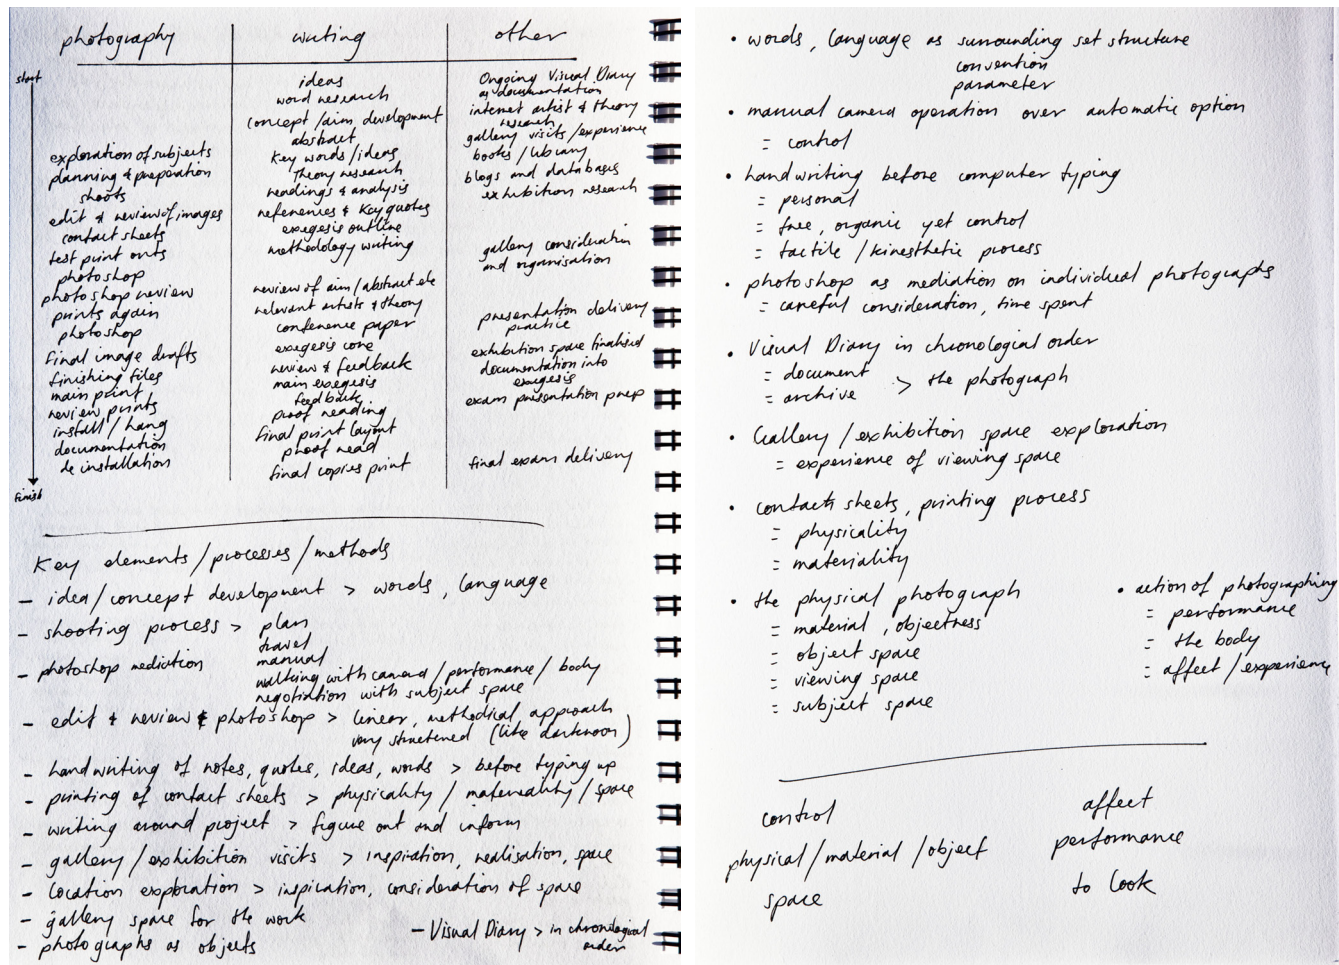 photography
writing
other
start
exploration of subjects
planning & preparation
shoots
edit & review of images
contact sheets
test print outs
photoshop
photoshop review
prints again
photoshop
final image drafts
finishing files
main print
review prints
install / hang
documentation
de installation
finish
ideas
word research
concept / aim development
abstract
key words / ideas
Theory research
readings & analysis
references & key quotes
exegesis outline
methodology writing
review of aim / abstract etc
relevant artists & theory
conference paper
exegesis core
review & feedback
main exegesis
feedback
proof reading
final print layout
proof read
final copies print
Ongoing Visual Diary
as documentation
internet artist & theory
research
gallery visits / experience
books / library
blogs and databases
exhibition research
gallery consideration
and organisation
presentation delivery
practice
exhibition space finalised
documentation into
exegesis
exam presentation prep
final exam delivery
Key elements / processes / methods
- idea / concept development > words, language
- shooting process > plan
travel
- photoshop mediation
manual
walking with camera / performance / body
negotiation with subject space
- edit & review & photoshop > linear, methodical, approach
very structured (like darkroom)
- handwriting of notes, quotes, ideas, words > before typing up
- printing of contact sheets > physicality / materiality / space
- writing around project > figure out and inform
- gallery / exhibition visits > inspiration, realisation, space
- location exploration > inspiration, consideration of space
- gallery space for the work
- photographs as objects
- Visual Diary > in chronological
order
• words, language as surrounding set structure
convention
parameter
• manual camera operation over automatic option
= control
• handwriting before computer typing
= personal
= free, organic yet control
= tactile / kinesthetic process
• photoshop as mediation on individual photographs
= careful consideration, time spent
• Visual Diary in chronological order
= document
= archive > the photograph
• Gallery / exhibition space exploration
= experience of viewing space
• contact sheets, printing process
= physicality
= materiality
• the physical photograph
= material, objectness
= object space
= viewing space
= subject space
• action of photographing
= performance
= the body
= affect / experience
control
physical / material / object
space
affect
performance
to look